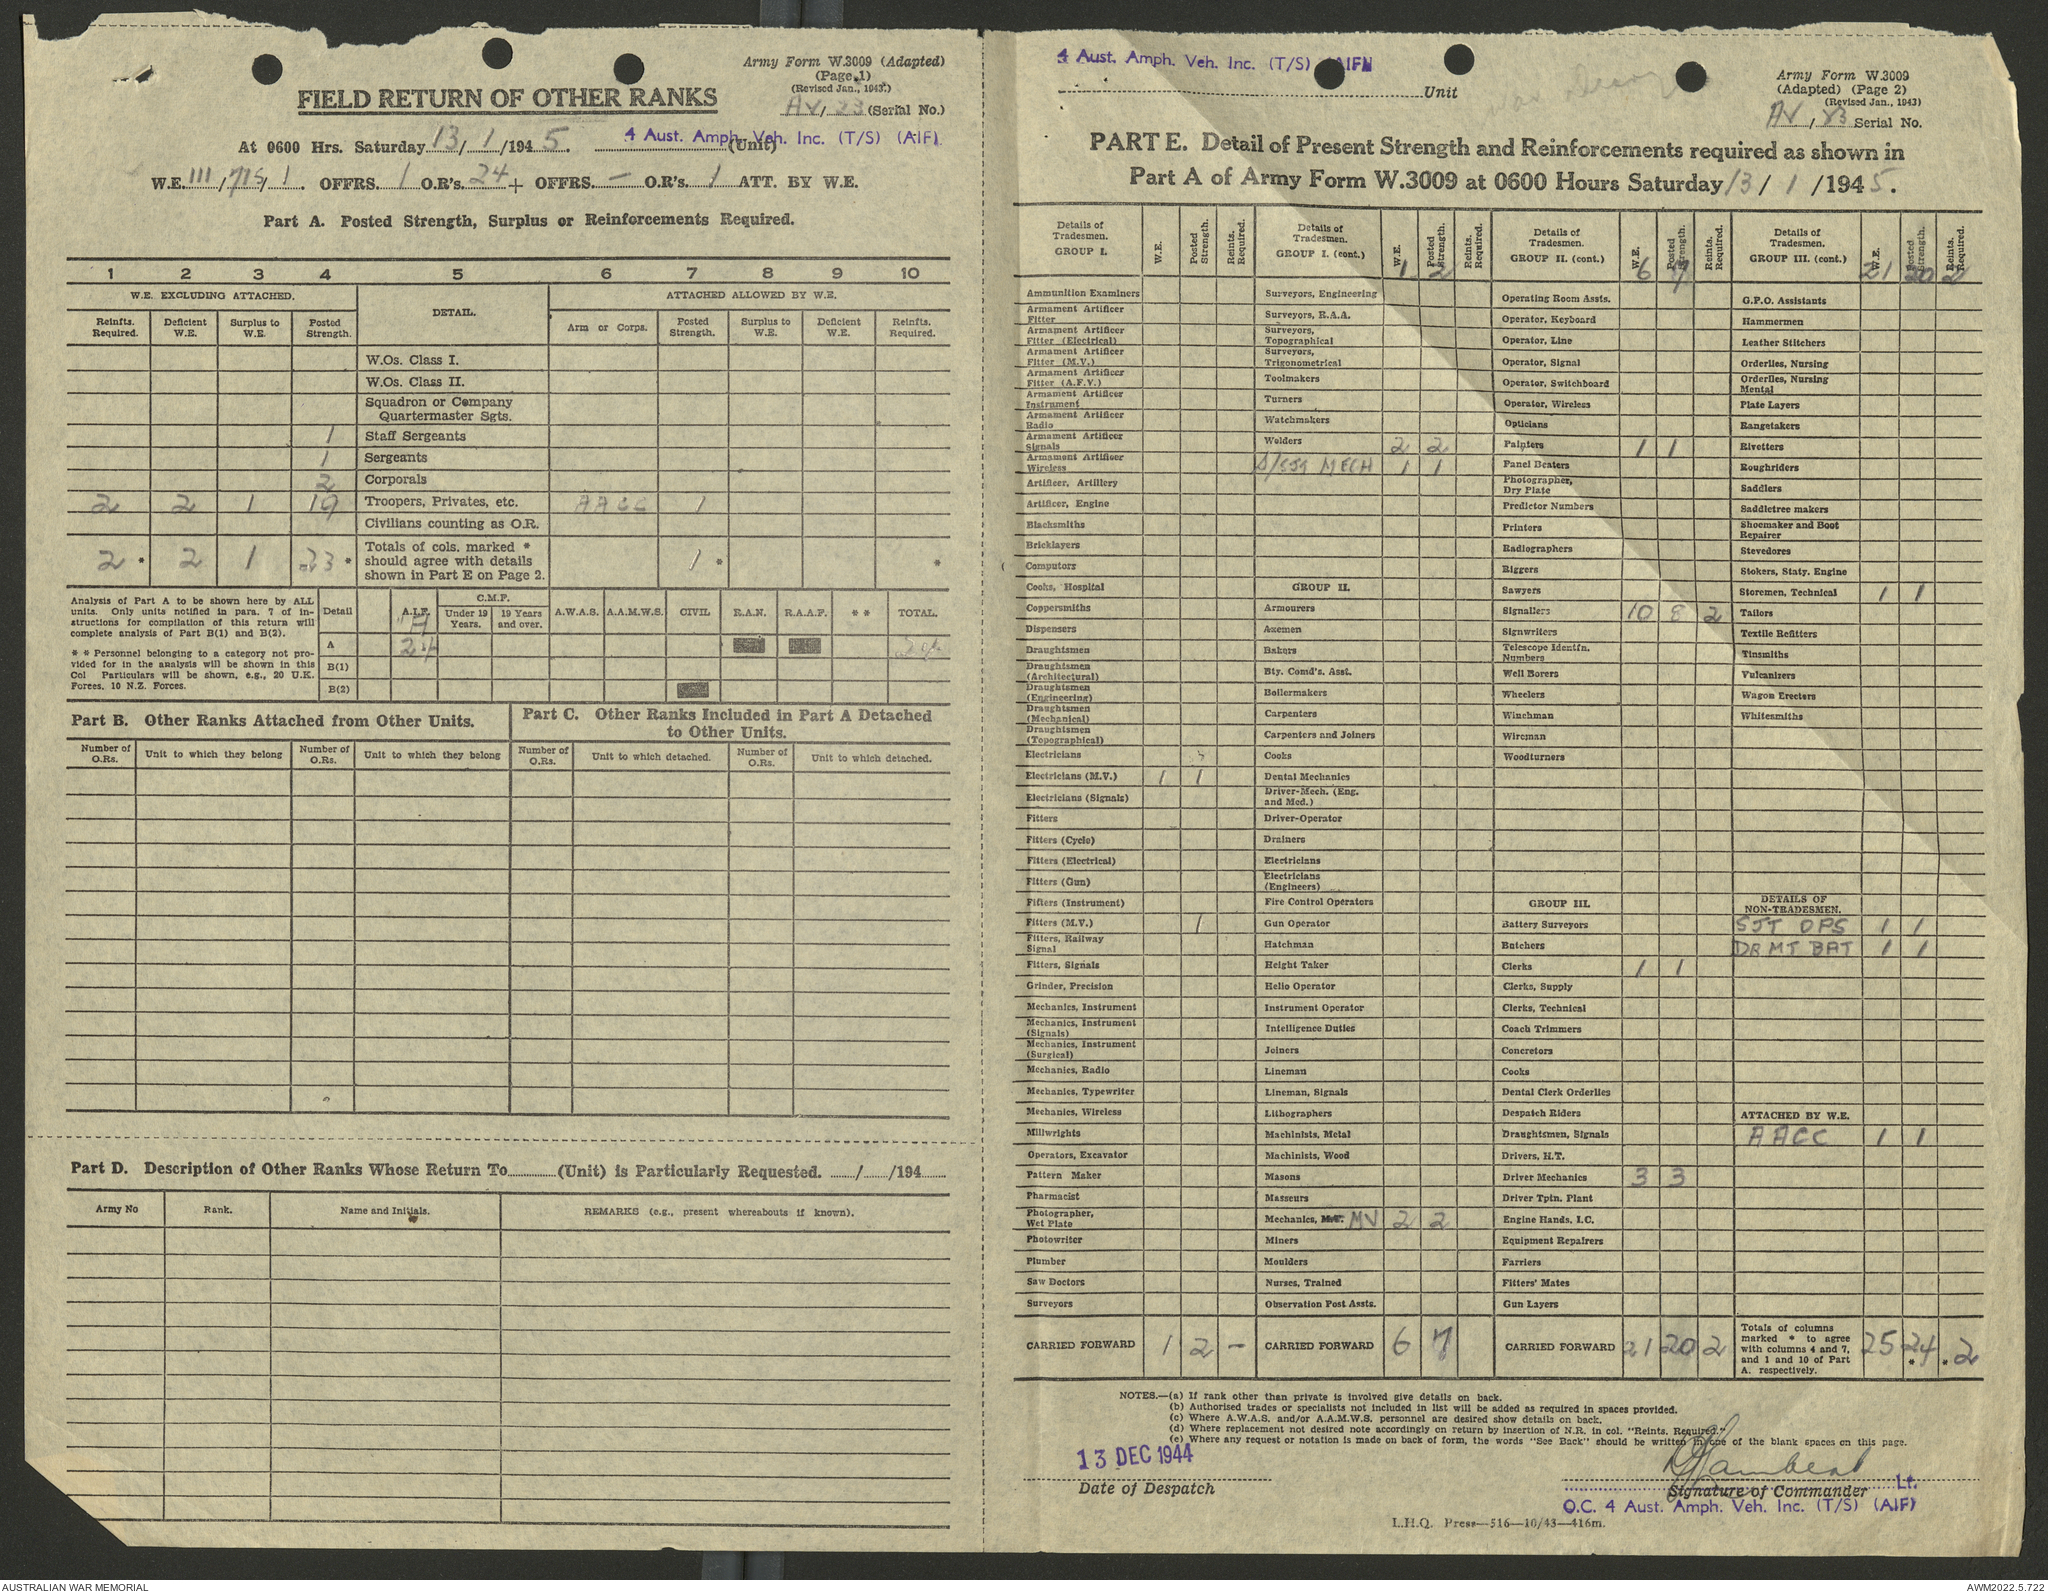 Army Form W.3009 (Adapted)
(Page 1)
(Revised Jan., 1943.)
FIELD RETURN OF OTHER RANKS
AV/23 (Serial No.)
At 0600 Hrs. Saturday 13/1/1945. 4 Aust. Amph. Veh. Inc. (T/S) (AIF) (Unit)
W.E. III/ /1. OFFRS. 1 O.R's. 24 + OFFRS. — O.R's. 1 ATT. BY W.E.
Part A. Posted Strength, Surplus or Reinforcements Required.
1 2 3 4 5 6 7 8 9 10
W.E. EXCLUDING ATTACHED. DETAIL. ATTACHED ALLOWED BY W.E.
Reinfts. Required. Deficient W.E. Surplus to W.E. Posted Strength. Arm or Corps. Posted Strength. Surplus to W.E. Deficient W.E. Reinfts. Required.
W.Os. Class I.
W.Os. Class II.
Squadron or Company Quartermaster Sgts.
1 Staff Sergeants
1 Sergeants
2 Corporals
2 2 1 19 Troopers, Privates, etc. AACC 1
Civilians counting as O.R.
2 * 2 1 23 * Totals of cols. marked * should agree with details shown in Part E on Page 2. 1 * *
Analysis of Part A to be shown here by ALL units. Only units notified in para. 7 of instructions for compilation of this return will complete analysis of Part B(1) and B(2).
* * Personnel belonging to a category not provided for in the analysis will be shown in this Col Particulars will be shown, e.g., 20 U.K. Forces, 10 N.Z. Forces.
Detail A.I.F. C.M.F. Under 19 Years. 19 Years and over. A.W.A.S. A.A.M.W.S. CIVIL R.A.N. R.A.A.F. * * TOTAL.
A 24 24
B(1)
B(2)
Part B. Other Ranks Attached from Other Units.
Part C. Other Ranks Included in Part A Detached to Other Units.
Number of O.Rs. Unit to which they belong Number of O.Rs. Unit to which they belong Number of O.Rs. Unit to which detached. Number of O.Rs. Unit to which detached.
Part D. Description of Other Ranks Whose Return To (Unit) is Particularly Requested. / /194
Army No Rank. Name and Initials. REMARKS (e.g., present whereabouts if known).
4 Aust. Amph. Veh. Inc. (T/S) (AIF)
Unit
Army Form W.3009
(Adapted) (Page 2)
(Revised Jan., 1943)
AV/23 Serial No.
PART E. Detail of Present Strength and Reinforcements required as shown in
Part A of Army Form W.3009 at 0600 Hours Saturday 13/1/1945.
Details of Tradesmen. GROUP I. W.E. Posted Strength. Reints. Required.
Ammunition Examiners
Armament Artificer Fitter
Armament Artificer Fitter (Electrical)
Armament Artificer Fitter (M.V.)
Armament Artificer Fitter (A.F.V.)
Armament Artificer Instrument
Armament Artificer Radio
Armament Artificer Signals
Armament Artificer Wireless
Artificer, Artillery
Artificer, Engine
Blacksmiths
Bricklayers
Computors
Cooks, Hospital
Coppersmiths
Dispensers
Draughtsmen
Draughtsmen (Architectural)
Draughtsmen (Engineering)
Draughtsmen (Mechanical)
Draughtsmen (Topographical)
Electricians
Electricians (M.V.) 1 1
Electricians (Signals)
Fitters
Fitters (Cycle)
Fitters (Electrical)
Fitters (Gun)
Fitters (Instrument)
Fitters (M.V.) 1
Fitters, Railway Signal
Fitters, Signals
Grinder, Precision
Mechanics, Instrument
Mechanics, Instrument (Signals)
Mechanics, Instrument (Surgical)
Mechanics, Radio
Mechanics, Typewriter
Mechanics, Wireless
Millwrights
Operators, Excavator
Pattern Maker
Pharmacist
Photographer, Wet Plate
Photowriter
Plumber
Saw Doctors
Surveyors
CARRIED FORWARD 1 2 —
Details of Tradesmen. GROUP I. (cont.) W.E. Posted Strength. Reints. Required.
1 2
Surveyors, Engineering
Surveyors, R.A.A.
Surveyors, Topographical
Surveyors, Trigonometrical
Toolmakers
Turners
Watchmakers
Welders 2 2
S/SJT MECH 1 1
GROUP II.
Armourers
Axemen
Bakers
Bty. Comd's. Asst.
Boilermakers
Carpenters
Carpenters and Joiners
Cooks
Dental Mechanics
Driver-Mech. (Eng. and Med.)
Driver-Operator
Drainers
Electricians
Electricians (Engineers)
Fire Control Operators
Gun Operator
Hatchman
Height Taker
Helio Operator
Instrument Operator
Intelligence Duties
Joiners
Lineman
Lineman, Signals
Lithographers
Machinists, Metal
Machinists, Wood
Masons
Masseurs
Mechanics, MV 2 2
Miners
Moulders
Nurses, Trained
Observation Post Assts.
CARRIED FORWARD 6 7
Details of Tradesmen. GROUP II. (cont.) W.E. Posted Strength. Reints. Required.
6 7
Operating Room Assts.
Operator, Keyboard
Operator, Line
Operator, Signal
Operator, Switchboard
Operator, Wireless
Opticians
Painters 1 1
Panel Beaters
Photographer, Dry Plate
Predictor Numbers
Printers
Radiographers
Riggers
Sawyers
Signallers 10 8 2
Signwriters
Telescope Identfn. Numbers
Well Borers
Wheelers
Winchman
Wireman
Woodturners
GROUP III.
Battery Surveyors
Butchers
Clerks 1 1
Clerks, Supply
Clerks, Technical
Coach Trimmers
Concretors
Cooks
Dental Clerk Orderlies
Despatch Riders
Draughtsmen, Signals
Drivers, H.T.
Driver Mechanics 3 3
Driver Tptn. Plant
Engine Hands, I.C.
Equipment Repairers
Farriers
Fitters' Mates
Gun Layers
CARRIED FORWARD 21 20 2
Details of Tradesmen. GROUP III. (cont.) W.E. Posted Strength. Reints. Required.
21 20 2
G.P.O. Assistants
Hammermen
Leather Stitchers
Orderlies, Nursing
Orderlies, Nursing Mental
Plate Layers
Rangetakers
Rivetters
Roughriders
Saddlers
Saddletree makers
Shoemaker and Boot Repairer
Stevedores
Stokers, Staty. Engine
Storemen, Technical 1 1
Tailors
Textile Refitters
Tinsmiths
Vulcanizers
Wagon Erectors
Whitesmiths
DETAILS OF NON-TRADESMEN.
SJT OPS 1 1
DR MT BAT 1 1
ATTACHED BY W.E.
AACC 1 1
Totals of columns marked * to agree with columns 4 and 7, and 1 and 10 of Part A. respectively. 25 24 * * 2
NOTES.—(a) If rank other than private is involved give details on back.
(b) Authorised trades or specialists not included in list will be added as required in spaces provided.
(c) Where A.W.A.S. and/or A.A.M.W.S. personnel are desired show details on back.
(d) Where replacement not desired note accordingly on return by insertion of N.R. in col. "Reints. Required."
(e) Where any request or notation is made on back of form, the words "See Back" should be written in one of the blank spaces on this page.
13 DEC 1944
Date of Despatch
Lambert Lt.
Signature of Commander
O.C. 4 Aust. Amph. Veh. Inc. (T/S) (AIF)
L.H.Q. Press—516—10/43—416m.
AUSTRALIAN WAR MEMORIAL
AWM2022.5.722